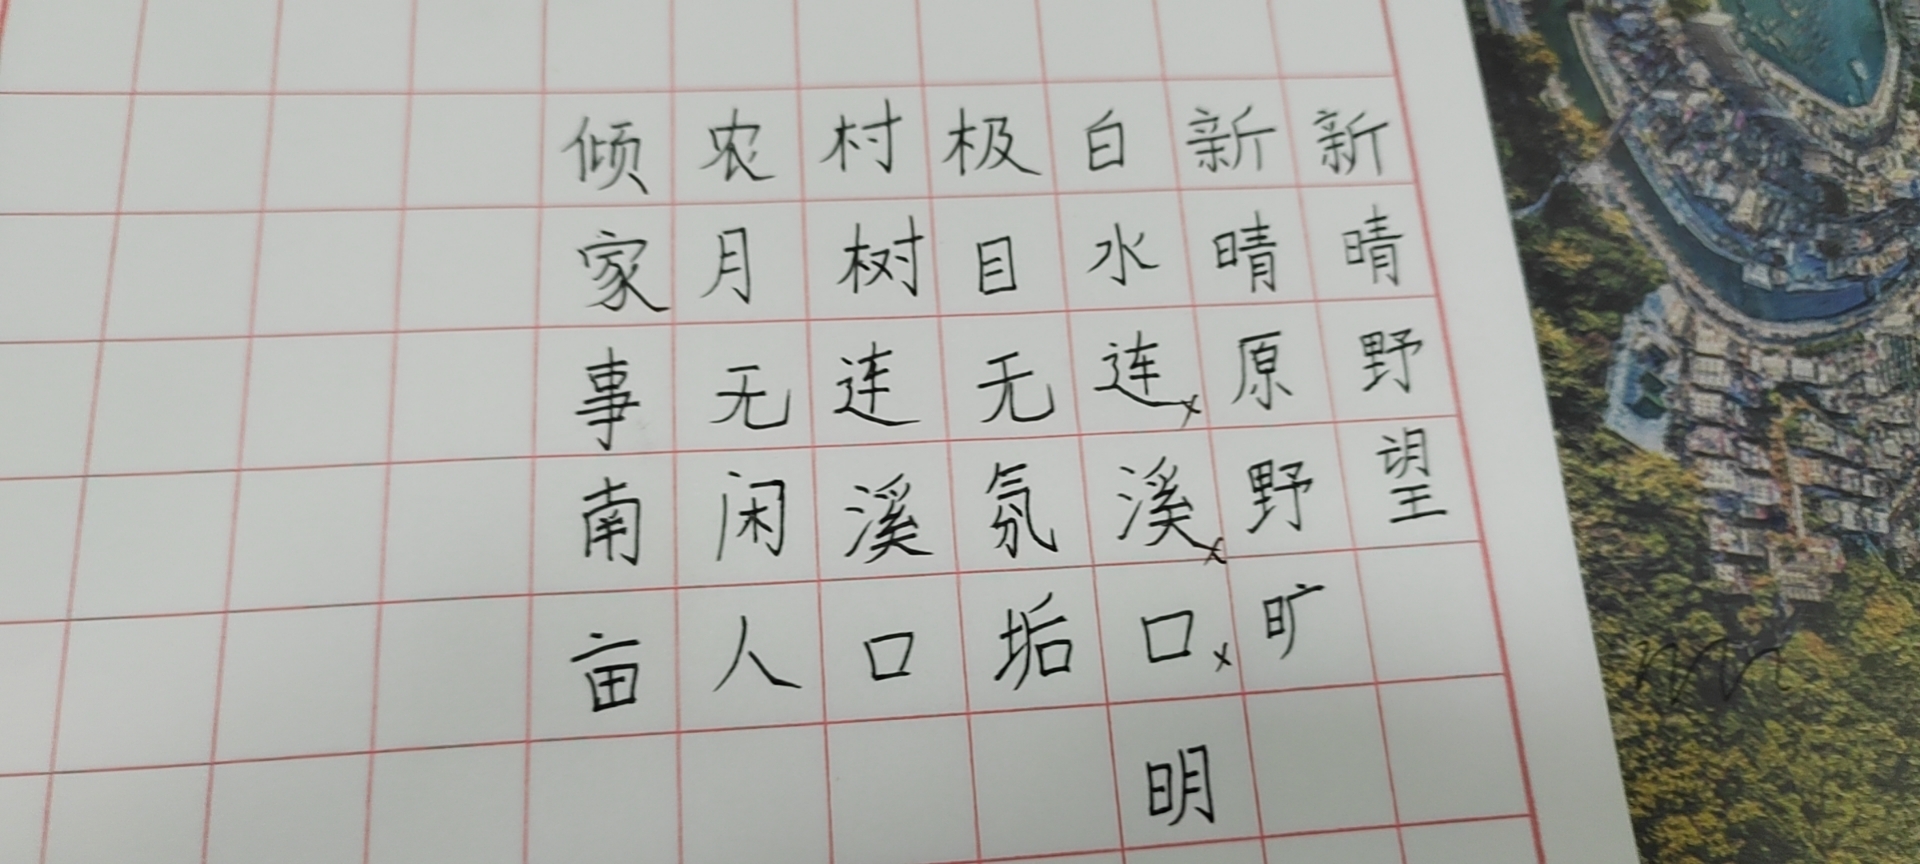 新晴野望
新晴原野旷
白水连溪口明
极目无氛垢
村树连溪口
农月无闲人
倾家事南亩